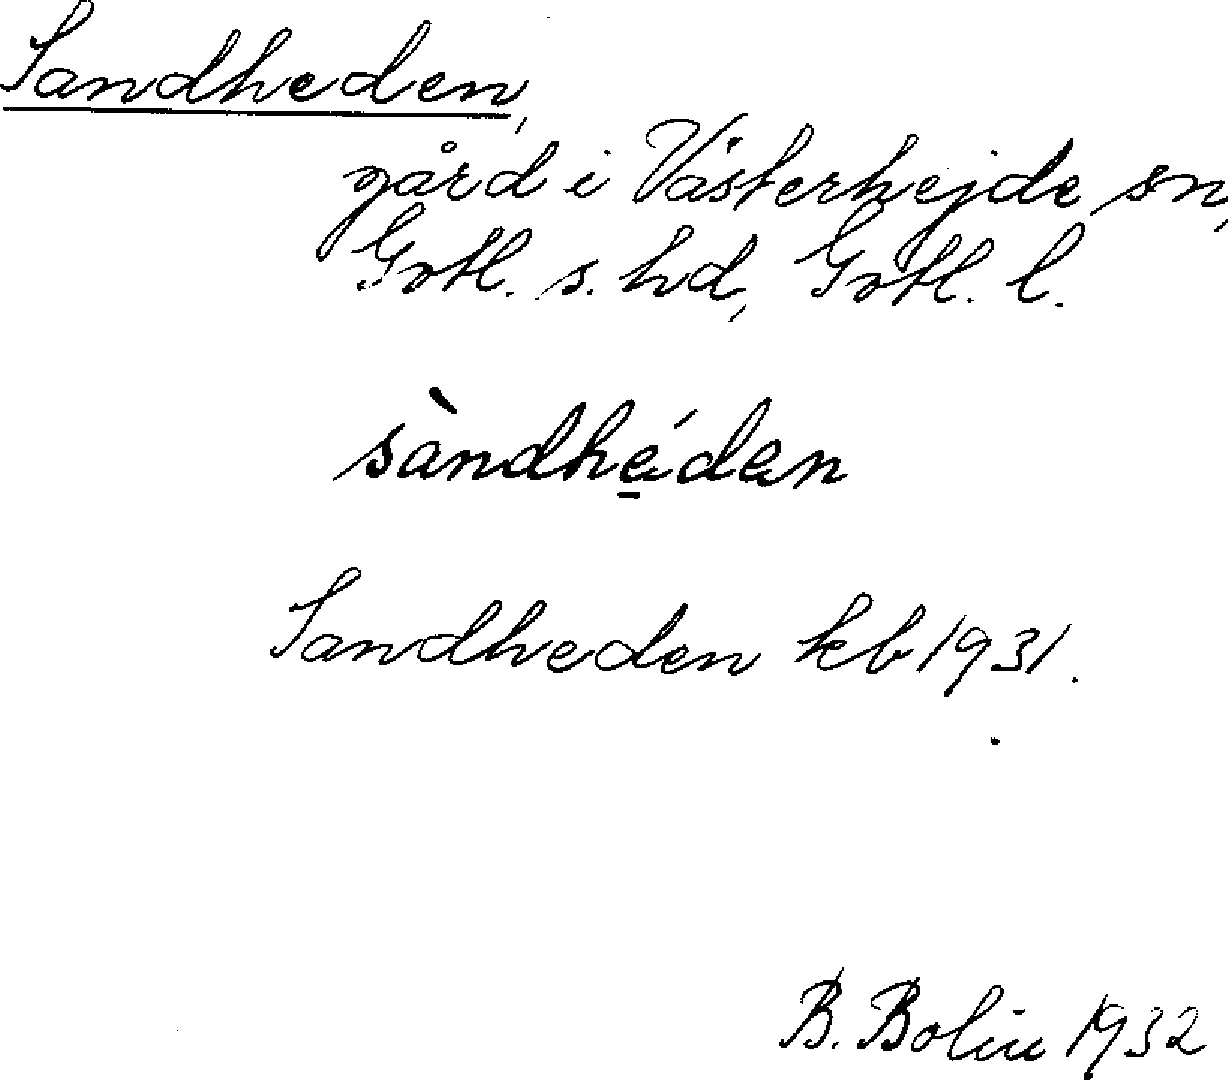 Sandheden,
gård i Västerhejde sn,
Gotl. s. hd, Gotl. l.
sàndhé̱den
Sandheden kb 1931.
B. Bolin 1932